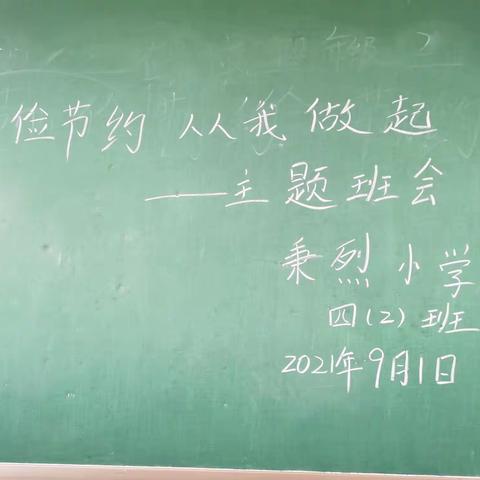 俭节约 从我做起
——主题班会
秉烈小学
四(2)班
2021年9月1日